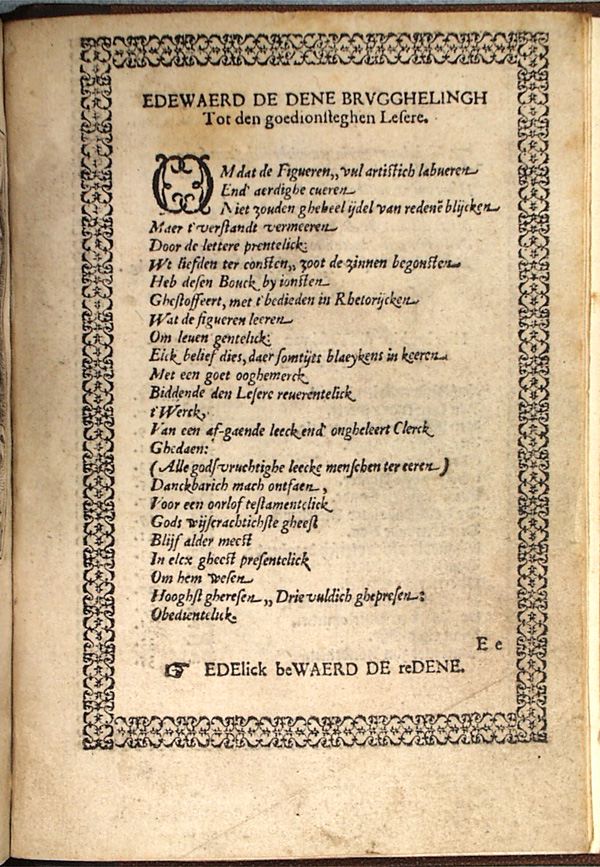 EDEWAERD DE DENE BRVGGHELINGH
Tot den goedionsteghen Lesere.
OM dat de Figueren,, vul artistich labueren
End' aerdighe cueren
Niet zouden gheheel ijdel van redenē blijcken
Maer t'verstandt vermeeren
Door de lettere prentelick:
Wt liefden ter consten,, zoot de zinnen begonsten
Heb desen Bouck by ionsten
Ghestoffeert, met t'bedieden in Rhetorijcken
Wat de figueren leeren
Om leuen gentelick:
Elck belief dies, daer somtijts blaeykens in keeren
Met een goet ooghemerck
Biddende den Lesere reuerentelick
t'Werck,
Van een af-gaende leeck end' ongheleert Clerck
Ghedaen:
(Alle godsvruchtighe leecke menschen ter eeren)
Danckbarich mach ontfaen,
Voor een oorlof testamentelick
Gods wijscrachtichste gheest
Blijf alder meest
In elcx gheest presentelick
Om hem wesen
Hooghst gheresen,, Drievuldich ghepresen:
Obedientelick.
E e
☞ EDElick beWAERD DE reDENE.